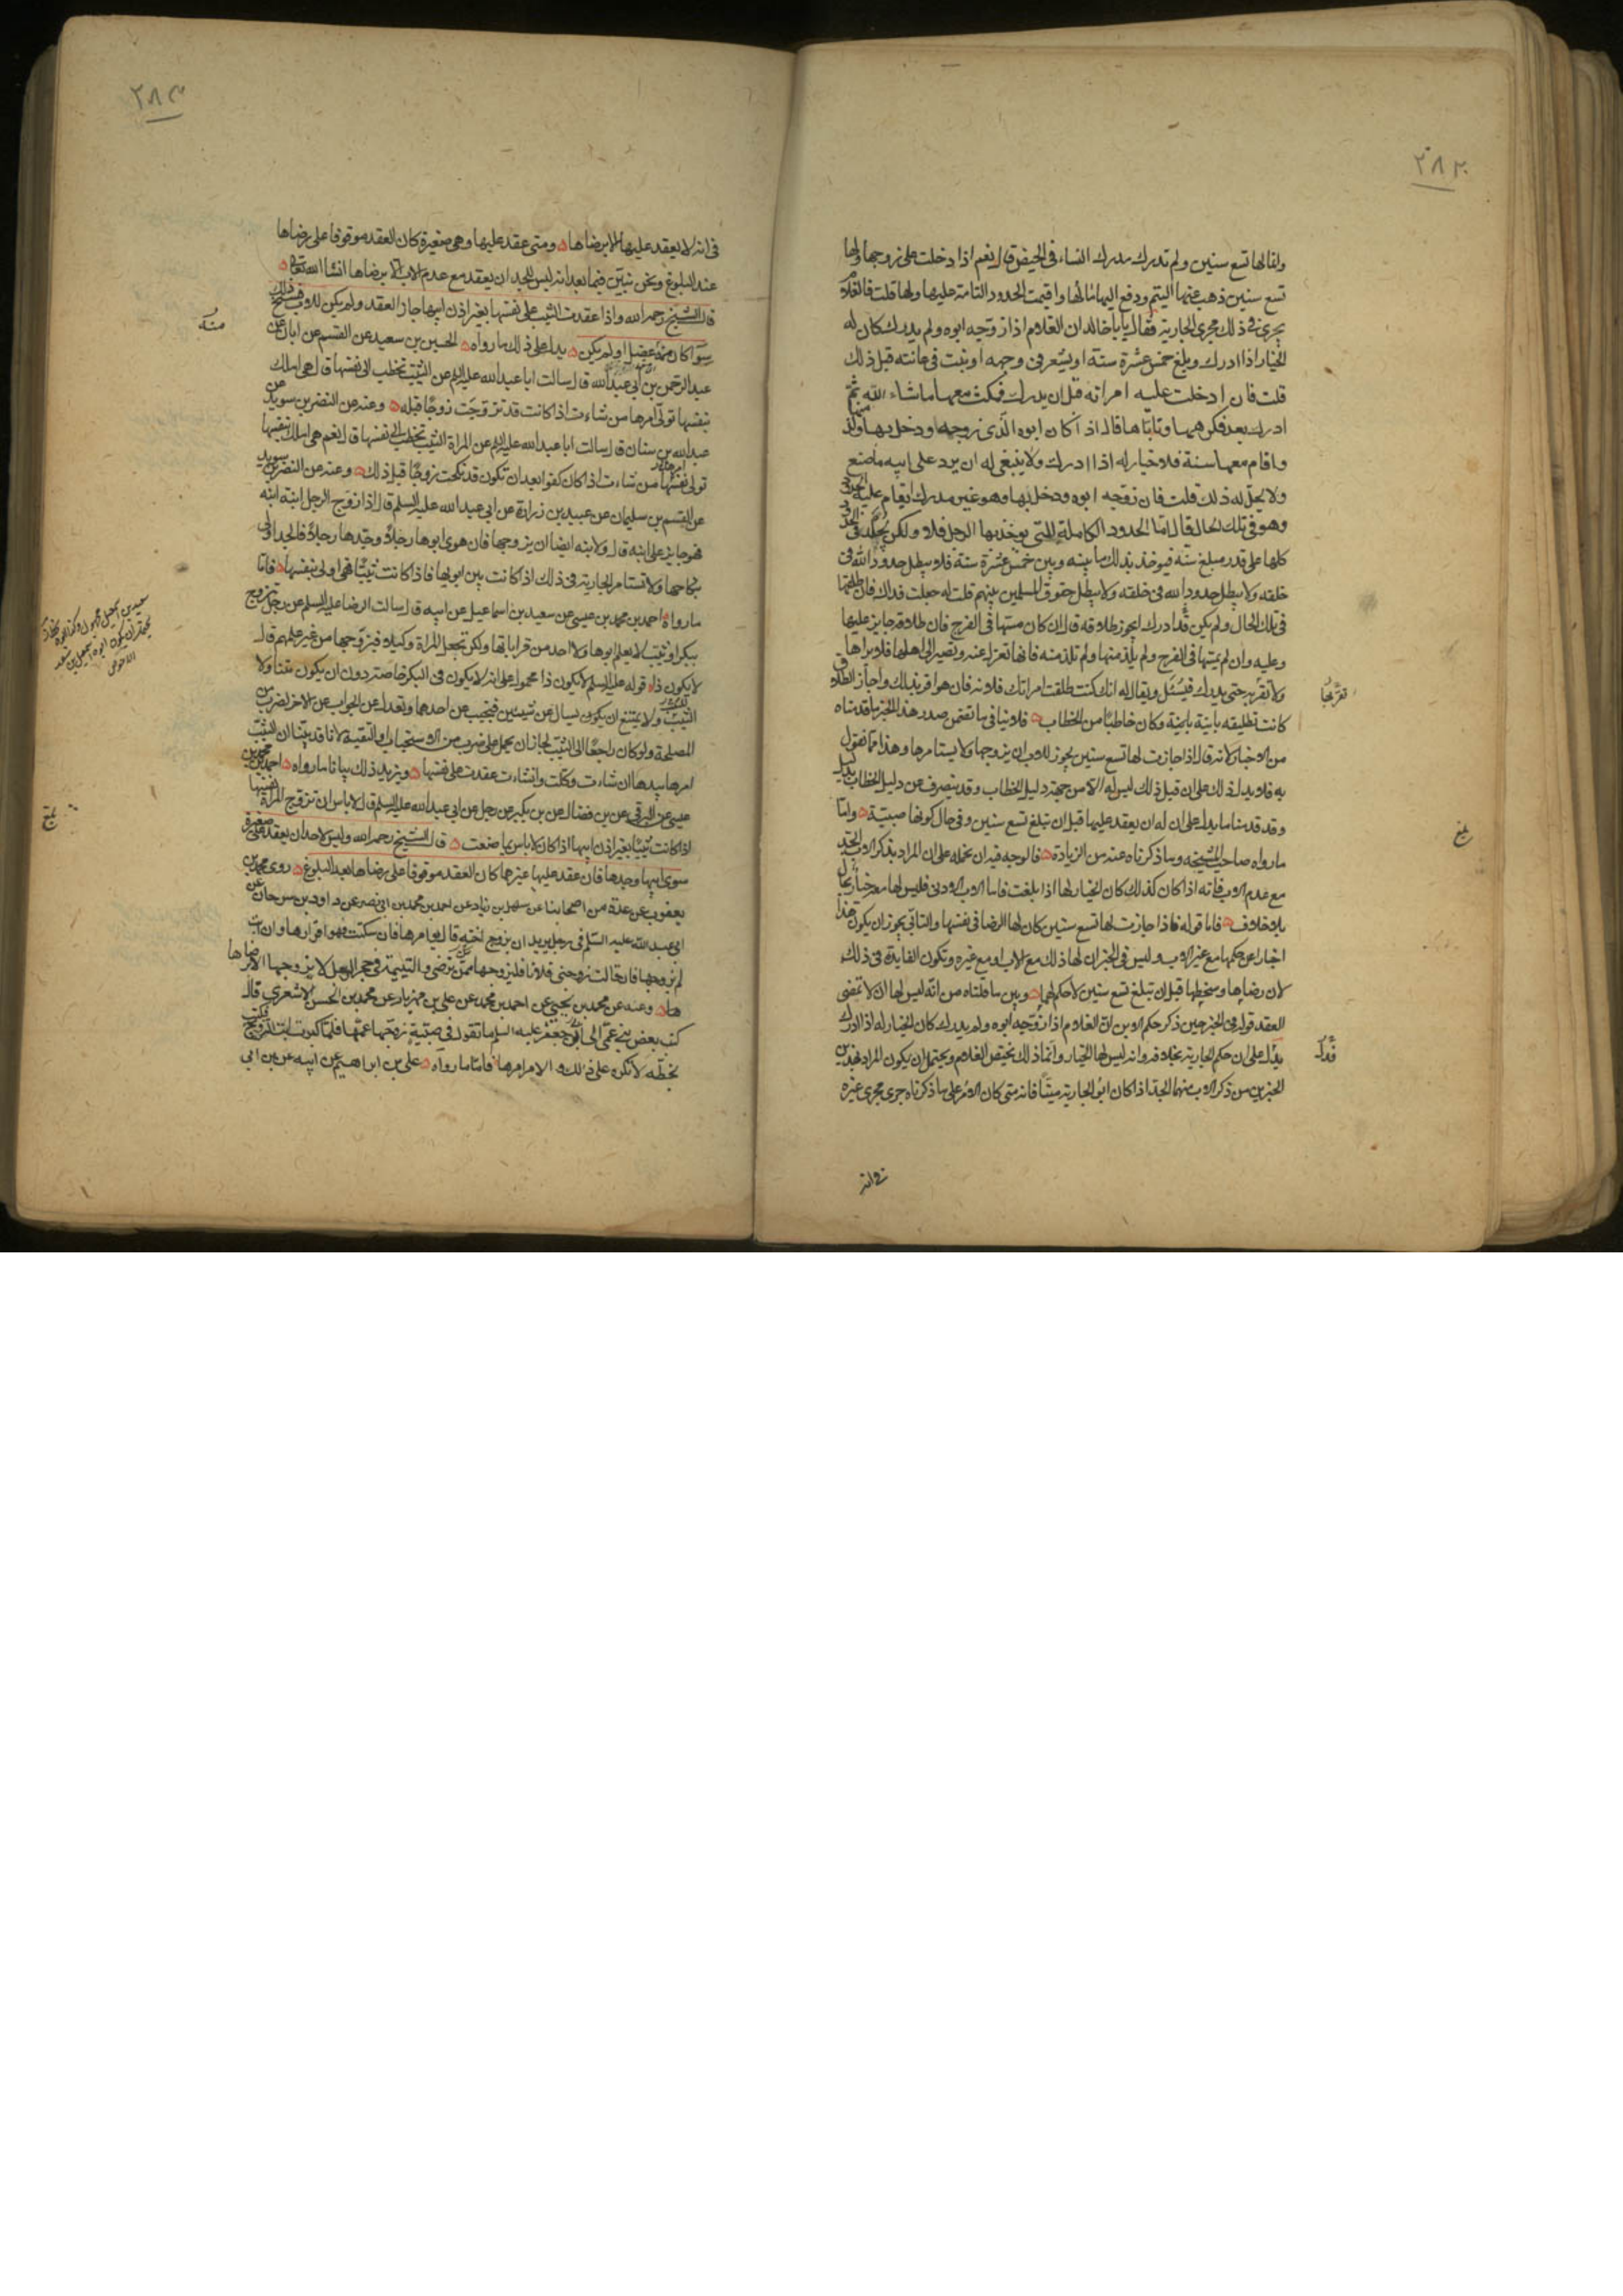 ٢٨٢
ولها لها تسع سنين ولم تدرك مدرك النساء فى الحيض قال نعم اذا دخلت على زوجها ولها
تسع سنين ذهب عنها اليتم ودفع اليها مالها واقيمت الحدود التامة عليها ولها قلت فالغلام
يجرى فى ذلك مجرى الجارية فقال يابا خالد ان الغلام اذا زوجه ابوه ولم يدرك كان له
الخيار اذا ادرك وبلغ خمس عشرة سنة او يشعر فى وجهه او ينبت فى عانته قبل ذلك
قلت فان ادخلت عليه امراته قبل ان يدرك فمكث معها ماشاء الله ثم
ادرك بعد فكرهها وتاباها قال اذا كان ابوه الذى زوجه ودخل بها ولذ منها
واقام معها سنة فلا خيار له اذا ادرك ولا ينبغى له ان يرد على ابيه ما صنع
ولا يحل له ذلك قلت فان زوجه ابوه ودخل بها وهو غير مدرك ايقام عليه الحدود
وهو فى تلك الحال قال اما الحدود الكاملة التى يوخذ بها الرجل فلا ولكن يجلد فى الحدود
كلها على قدر مبلغ سنه فيوخذ بذلك ما بينه وبين خمس عشرة سنة فلا يبطل حدود الله فى
خلقه ولا يبطل حدود الله فى خلقه ولا يبطل حقوق المسلمين بينهم قلت له جعلت فداك فان طلقها
فى تلك الحال ولم يكن قد ادرك ايجوز طلاقه قال ان كان مسها فى الفرج فان طلاقه جايز عليها
وعليه وان لم يمسها فى الفرج ولم يلذ منها ولم تلذ منه فانها تعزل عنه وتصير الى اهلها فلا يراها
ولا تقربه حتى يدرك فيسئل ويقال له انك كنت طلقت امراتك فلانة فان هو اقر بذلك واجاز الطلاق
كانت تطليقه باينة باينة وكان خاطبا من الخطاب فلا ينافى ما تضمن صدر هذا الخبر ما قدمناه
من الاخبار لانه قال اذا جازت لها تسع سنين يجوز للاب ان يزوجها ولا يستامرها وهذا مما نقول
به فلا يدل ذلك على ان قبل ذلك ليس له الا من جهة دليل الخطاب وقد ينصرف عن دليل الخطاب بدليل
وقد قدمنا ما يدل على ان له ان يعقد عليها قبل ان تبلغ تسع سنين وفى حال كونها صبية واما
ما رواه صاحب المشيخه وما ذكرناه عنه من الزيادة فالوجه فيه ان نحمله على ان المراد بذكر الاب الجد
مع عدم الاب فانه اذا كان كذلك كان الخيار لها اذا بلغت فاما الاب الادنى فليس لها معه خيار بحال
بلا خلاف فاما قوله فاذا جازت لها تسع سنين كان لها الرضا فى نفسها والتابى يجوز ان يكون هذا
اخبارا عن حكمها مع غير الاب وليس فى الخبر ان لها ذلك مع الاب او مع غيره وتكون الفايدة فى ذلك
لان رضاها وسخطها قبل ان تبلغ تسع سنين لا حكم لهما ويبين ما قلناه من انه ليس لها ان لا تمضى
العقد قوله فى الخبر حين ذكر حكم الابن ان الغلام اذا زوجه ابوه ولم يدرك كان الخيار له اذا ادرك
يدل على ان حكم الجارية بخلافه وانه ليس لها الخيار وانما ذلك يختص الغلام ويحتمل ان يكون المراد بهذين
الخبرين من ذكر الاب منهما الجد اذا كان ابو الجارية ميتا فانه متى كان الامر على ما ذكرناه جرى مجرى غيره
بلغ
فى انه
٢٨٣
فى انه لا يعقد عليها الا برضاها ومتى عقد عليها وهى صغيرة كان العقد موقوفا على رضاها
عند البلوغ ونحن نبين فيما بعد انه ليس للجد ان يعقد مع عدم الاب الا برضاها انشا الله تعالى
قال الشيخ رحمه الله واذا عقدت الثيب على نفسها بغير اذن ابيها جاز العقد ولم يكن للاب فسخ ذلك
سوا كان منه عضل او لم يكن يدل على ذلك ما رواه الحسين بن سعيد عن القسم عن ابان عن
عبد الرحمن بن ابى عبد الله قال سالت ابا عبد الله عليه السلم عن الثيب تخطب الى نفسها قال هى املك
بنفسها تولى امرها من شاءت اذا كانت قد تزوجت زوجا قبله وعنه عن النضر بن سويد عن
عبد الله بن سنان قال سالت ابا عبد الله عليه السلم عن المراة الثيب تخطب الى نفسها قال نعم هى املك بنفسها
تولى نفسها من شاءت اذا كان كفوا بعد ان تكون قد نكحت زوجا قبل ذلك وعنه عن النضر بن سويد
عن القسم بن سليمان عن عبيد بن زرارة عن ابى عبد الله عليه السلم قال اذا زوج الرجل ابنة ابنه
فهو جايز على ابنه قال ولابنه ايضا ان يزوجها فان هوى ابوها رجلا وجدها رجلا فالجد اولى
بنكاحها ولا تستامر الجارية فى ذلك اذا كانت بين ابويها فاذا كانت ثيبا فهى اولى بنفسها فاما
ما رواه احمد بن محمد بن عيسى عن سعيد بن اسماعيل عن ابيه قال سالت الرضا عليه السلم عن رجل تزوج
ببكر او ثيب لا يعلم ابوها ولا احد من قراباتها ولكن تجعل المراة وكيلا فيزوجها من غير علمهم قال
لا يكون ذا قوله عليه السلم لا يكون ذا محمول على انه لا يكون فى البكر خاصة دون ان يكون متناولا
للثيب ولا يمتنع ان يكون يسال عن شيئين فيجيب عن احدهما ويعدل عن الجواب عن الاخر لضرب من
المصلحة ولو كان راجعا الى الثيب لجاز ان يحمل على ضرب من الاستحباب او التقية لانا قد بينا ان الثيب
امرها بيدها ان شاءت وكلت وانشاءت عقدت على نفسها ويزيد ذلك بيانا ما رواه احمد بن محمد بن
عيسى عن البرقى عن بن فضال عن بن بكير عن رجل عن ابى عبد الله عليه السلم قال لا باس ان تزوج المراة نفسها
اذا كانت ثيبا بغير اذن ابيها اذا كان لا باس بما صنعت قال الشيخ رحمه الله وليس لاحد ان يعقد على صغيرة
سوى ابيها وجدها فان عقد عليها غيرهما كان العقد موقوفا على رضاها بعد البلوغ روى محمد بن
يعقوب عن عدة من اصحابنا عن سهل بن زياد عن احمد بن محمد بن ابى نصر عن داود بن سرحان عن
ابى عبد الله عليه السلم فى رجل يريد ان يزوج اخته قال يوامرها فان سكتت فهو اقرارها وان ابت
لم يزوجها فان قالت زوجنى فلانا فليزوجها ممن ترضى واليتيمة فى حجر الرجل لا يزوجها الا برضاها
وعنه عن محمد بن يحيى عن احمد بن محمد عن على بن مهزيار عن محمد بن الحسن الاشعرى قال
كتب بعض بنى عمى الى ابى جعفر عليه السلم ما تقول فى صبية زوجها عمها فلما كبرت ابت التزويج فكتب
بخطه لا تكره على ذلك والامر امرها فاما ما رواه على بن ابراهيم عن ابيه عن بن ابى